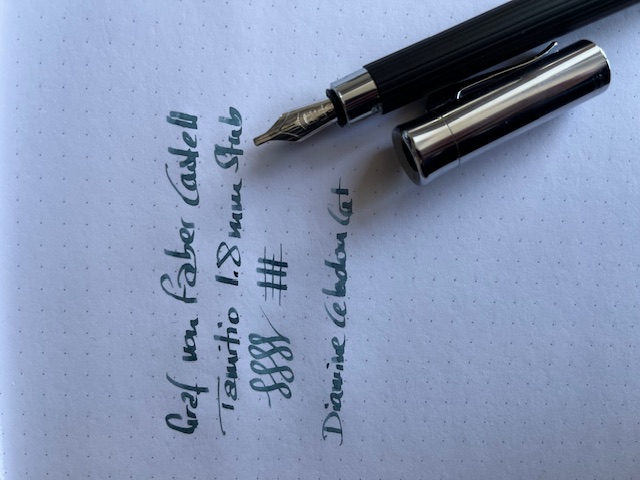 Graf von Faber Castell
Tamitio 1.8 mm Stub
Diamine Celadon Cat